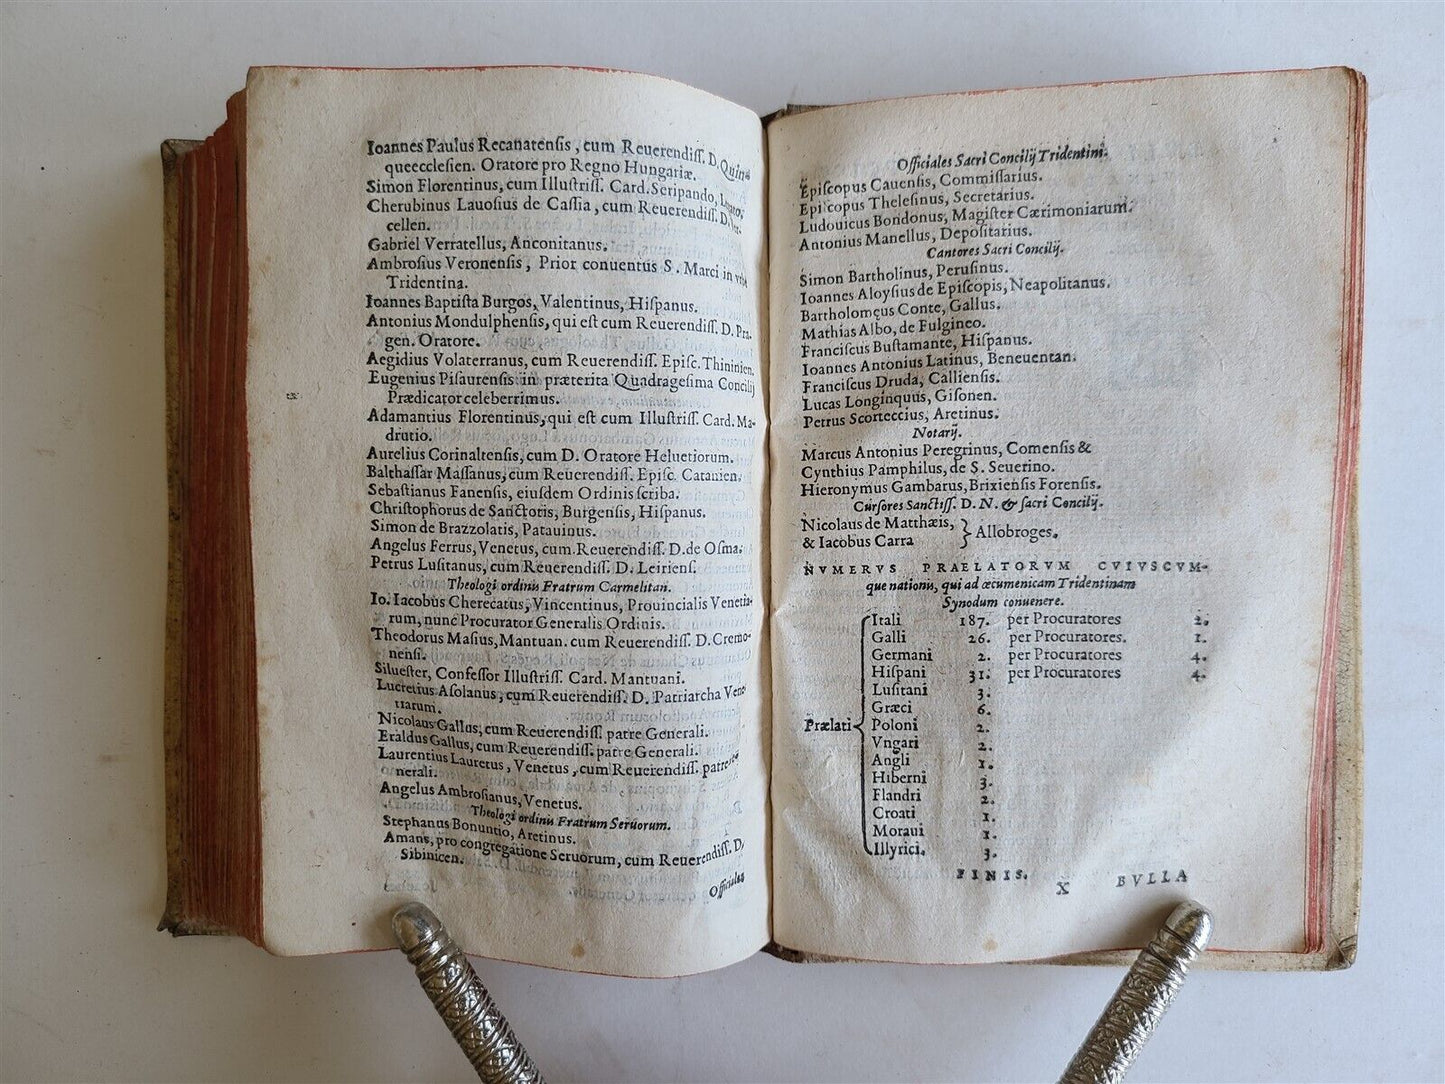 Ioannes Paulus Recanatensis, cum Reuerendiss. D. Quin-
queecclesien. Oratore pro Regno Hungariæ.
Simon Florentinus, cum Illustriss. Card. Seripando, Legato.
Cherubinus Lauosius de Cassia, cum Reuerendiss. D. Ver-
cellen.
Gabriel Verratellus, Anconitanus.
Ambrosius Veronensis, Prior conuentus S. Marci in vrbe
Tridentina.
Ioannes Baptista Burgos, Valentinus, Hispanus.
Antonius Mondulphensis, qui est cum Reuerendiss. D. Pra-
gen. Oratore.
Aegidius Volaterranus, cum Reuerendiss. Episc. Thininien.
Eugenius Pisaurensis in præterita Quadragesima Concilij
Prædicator celeberrimus.
Adamantius Florentinus, qui est cum Illustriss. Card. Ma-
drutio.
Aurelius Corinaltensis, cum D. Oratore Heluetiorum.
Balthassar Massanus, cum Reuerendiss. Episc. Catanien.
Sebastianus Fanensis, eiusdem Ordinis scriba.
Christophorus de Sanctotis, Burgensis, Hispanus.
Simon de Brazzolatis, Patauinus.
Angelus Ferrus, Venetus, cum Reuerendiss. D. de Osma.
Petrus Lusitanus, cum Reuerendiss. D. Leiriens.
Theologi ordinis Fratrum Carmelitan.
Io. Iacobus Cherecatus, Vincentinus, Prouincialis Venetia-
rum, nunc Procurator Generalis Ordinis.
Theodorus Masius, Mantuan. cum Reuerendiss. D. Cremo-
nensi.
Siluester, Confessor Illustriss. Card. Mantuani.
Lucretius Asolanus, cum Reuerendiss. D. Patriarcha Vene-
tiarum.
Nicolaus Gallus, cum Reuerendiss. patre Generali.
Eraldus Gallus, cum Reuerendiss. patre Generali.
Laurentius Lauretus, Venetus, cum Reuerendiss. patre ge-
nerali.
Angelus Ambrosianus, Venetus.
Theologi ordinis Fratrum Seruorum.
Stephanus Bonuntio, Aretinus.
Amans, pro congregatione Seruorum, cum Reuerendiss. D.
Sibinicen.
Officiales
Officiales Sacri Concilij Tridentini.
Episcopus Cauensis, Commissarius.
Episcopus Thelesinus, Secretarius.
Ludouicus Bondonus, Magister Cærimoniarum.
Antonius Manellus, Depositarius.
Cantores Sacri Concilij.
Simon Bartholinus, Perusinus.
Ioannes Aloysius de Episcopis, Neapolitanus.
Bartholomęus Conte, Gallus.
Mathias Albo, de Fulgineo.
Franciscus Bustamante, Hispanus.
Ioannes Antonius Latinus, Beneuentan.
Franciscus Druda, Calliensis.
Lucas Longinquus, Gisonen.
Petrus Scorteccius, Aretinus.
Notarij.
Marcus Antonius Peregrinus, Comensis &
Cynthius Pamphilus, de S. Seuerino.
Hieronymus Gambarus, Brixiensis Forensis.
Cursores Sanctiss. D. N. & sacri Concilij.
Nicolaus de Matthæis,
& Iacobus Carra } Allobroges.
NVMERVS PRAELATORVM CVIVSCVM-
que nationis, qui ad œcumenicam Tridentinam
Synodum conuenere.
Prælati {
Itali 187. per Procuratores 2.
Galli 26. per Procuratores. 1.
Germani 2. per Procuratores 4.
Hispani 31. per Procuratores 4.
Lusitani 3.
Græci 6.
Poloni 2.
Vngari 2.
Angli 1.
Hiberni 3.
Flandri 2.
Croati 1.
Moraui 1.
Illyrici. 3.
FINIS.
X BVLLA